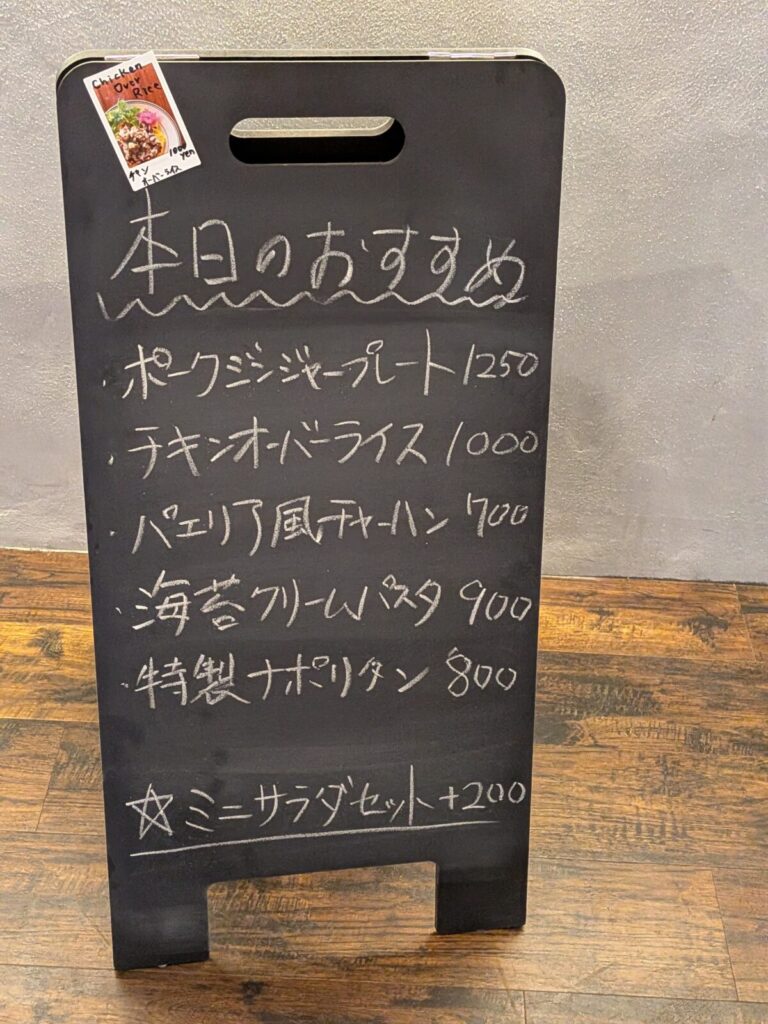 Chicken
Over
Rice
1000
yen
チキン
オーバーライス
本日のおすすめ
・ポークジンジャープレート 1250
・チキンオーバーライス 1000
・パエリア風チャーハン 700
・海苔クリームパスタ 900
・特製ナポリタン 800
☆ミニサラダセット+200